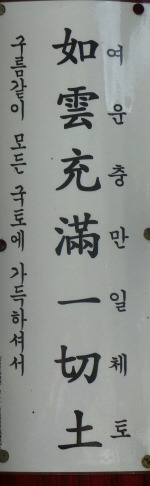 여운충만일체토
如雲充滿一切土
구름같이 모든 국토에 가득하셔서